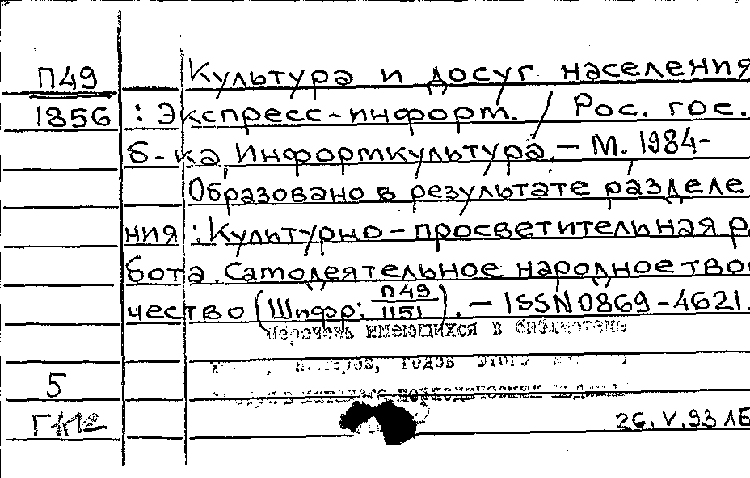 П49 Культура и досуг населения
1856 : Экспресс-информ. / Рос. гос.
б-ка, Информкультура. – М. 1984-
Образовано в результате разделе
ния : Культурно-просветительная ра
бота. Самодеятельное народное твор
чество (Шифр: П49/1151). – ISSN 0869-4621.
Перечень имеющихся в библиотеке
номеров, годов этого
5
26.V.93 ЛБ